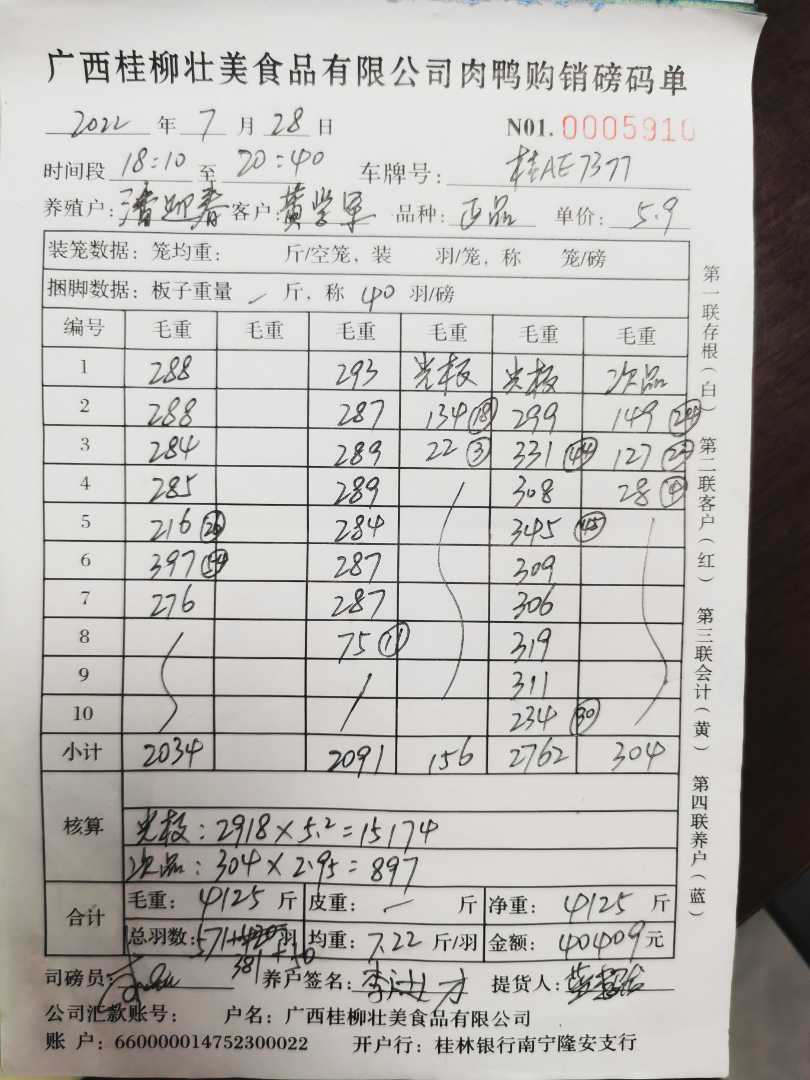 广西桂柳壮美食品有限公司肉鸭购销磅码单
2022 年 7 月 28 日 N01. 0005910
时间段 18:10 至 20:40 车牌号: 桂AE7377
养殖户: 潘迎春 客户: 黄学军 品种: 正品 单价: 5.9
装笼数据: 笼均重: 斤/空笼, 装 羽/笼, 称 笼/磅
捆脚数据: 板子重量 — 斤, 称 40 羽/磅
编号 毛重 毛重 毛重 毛重 毛重 毛重
1 288 293 光板 光板 次品
2 288 287 134 ⑱ 299 149
3 284 289 22 ③ 331 ㊹ 127
4 285 289 308 28 ④
5 216 ㉖ 284 345 ㊺
6 397 287 309
7 276 287 306
8 75 ⑪ 319
9 311
10 234 ㉚
小计 2034 2091 156 2762 304
核算
光板: 2918 × 5.2 = 15174
次品: 304 × 2.95 = 897
合计 毛重: 4125 斤 皮重: — 斤 净重: 4125 斤
总羽数: 571 羽 均重: 7.22 斤/羽 金额: 40409 元
381 + 50
司磅员: 养户签名: 提货人:
公司汇款账号: 户名: 广西桂柳壮美食品有限公司
账 户: 660000014752300022 开户行: 桂林银行南宁隆安支行
第一联存根(白) 第二联客户(红) 第三联会计(黄) 第四联养户(蓝)